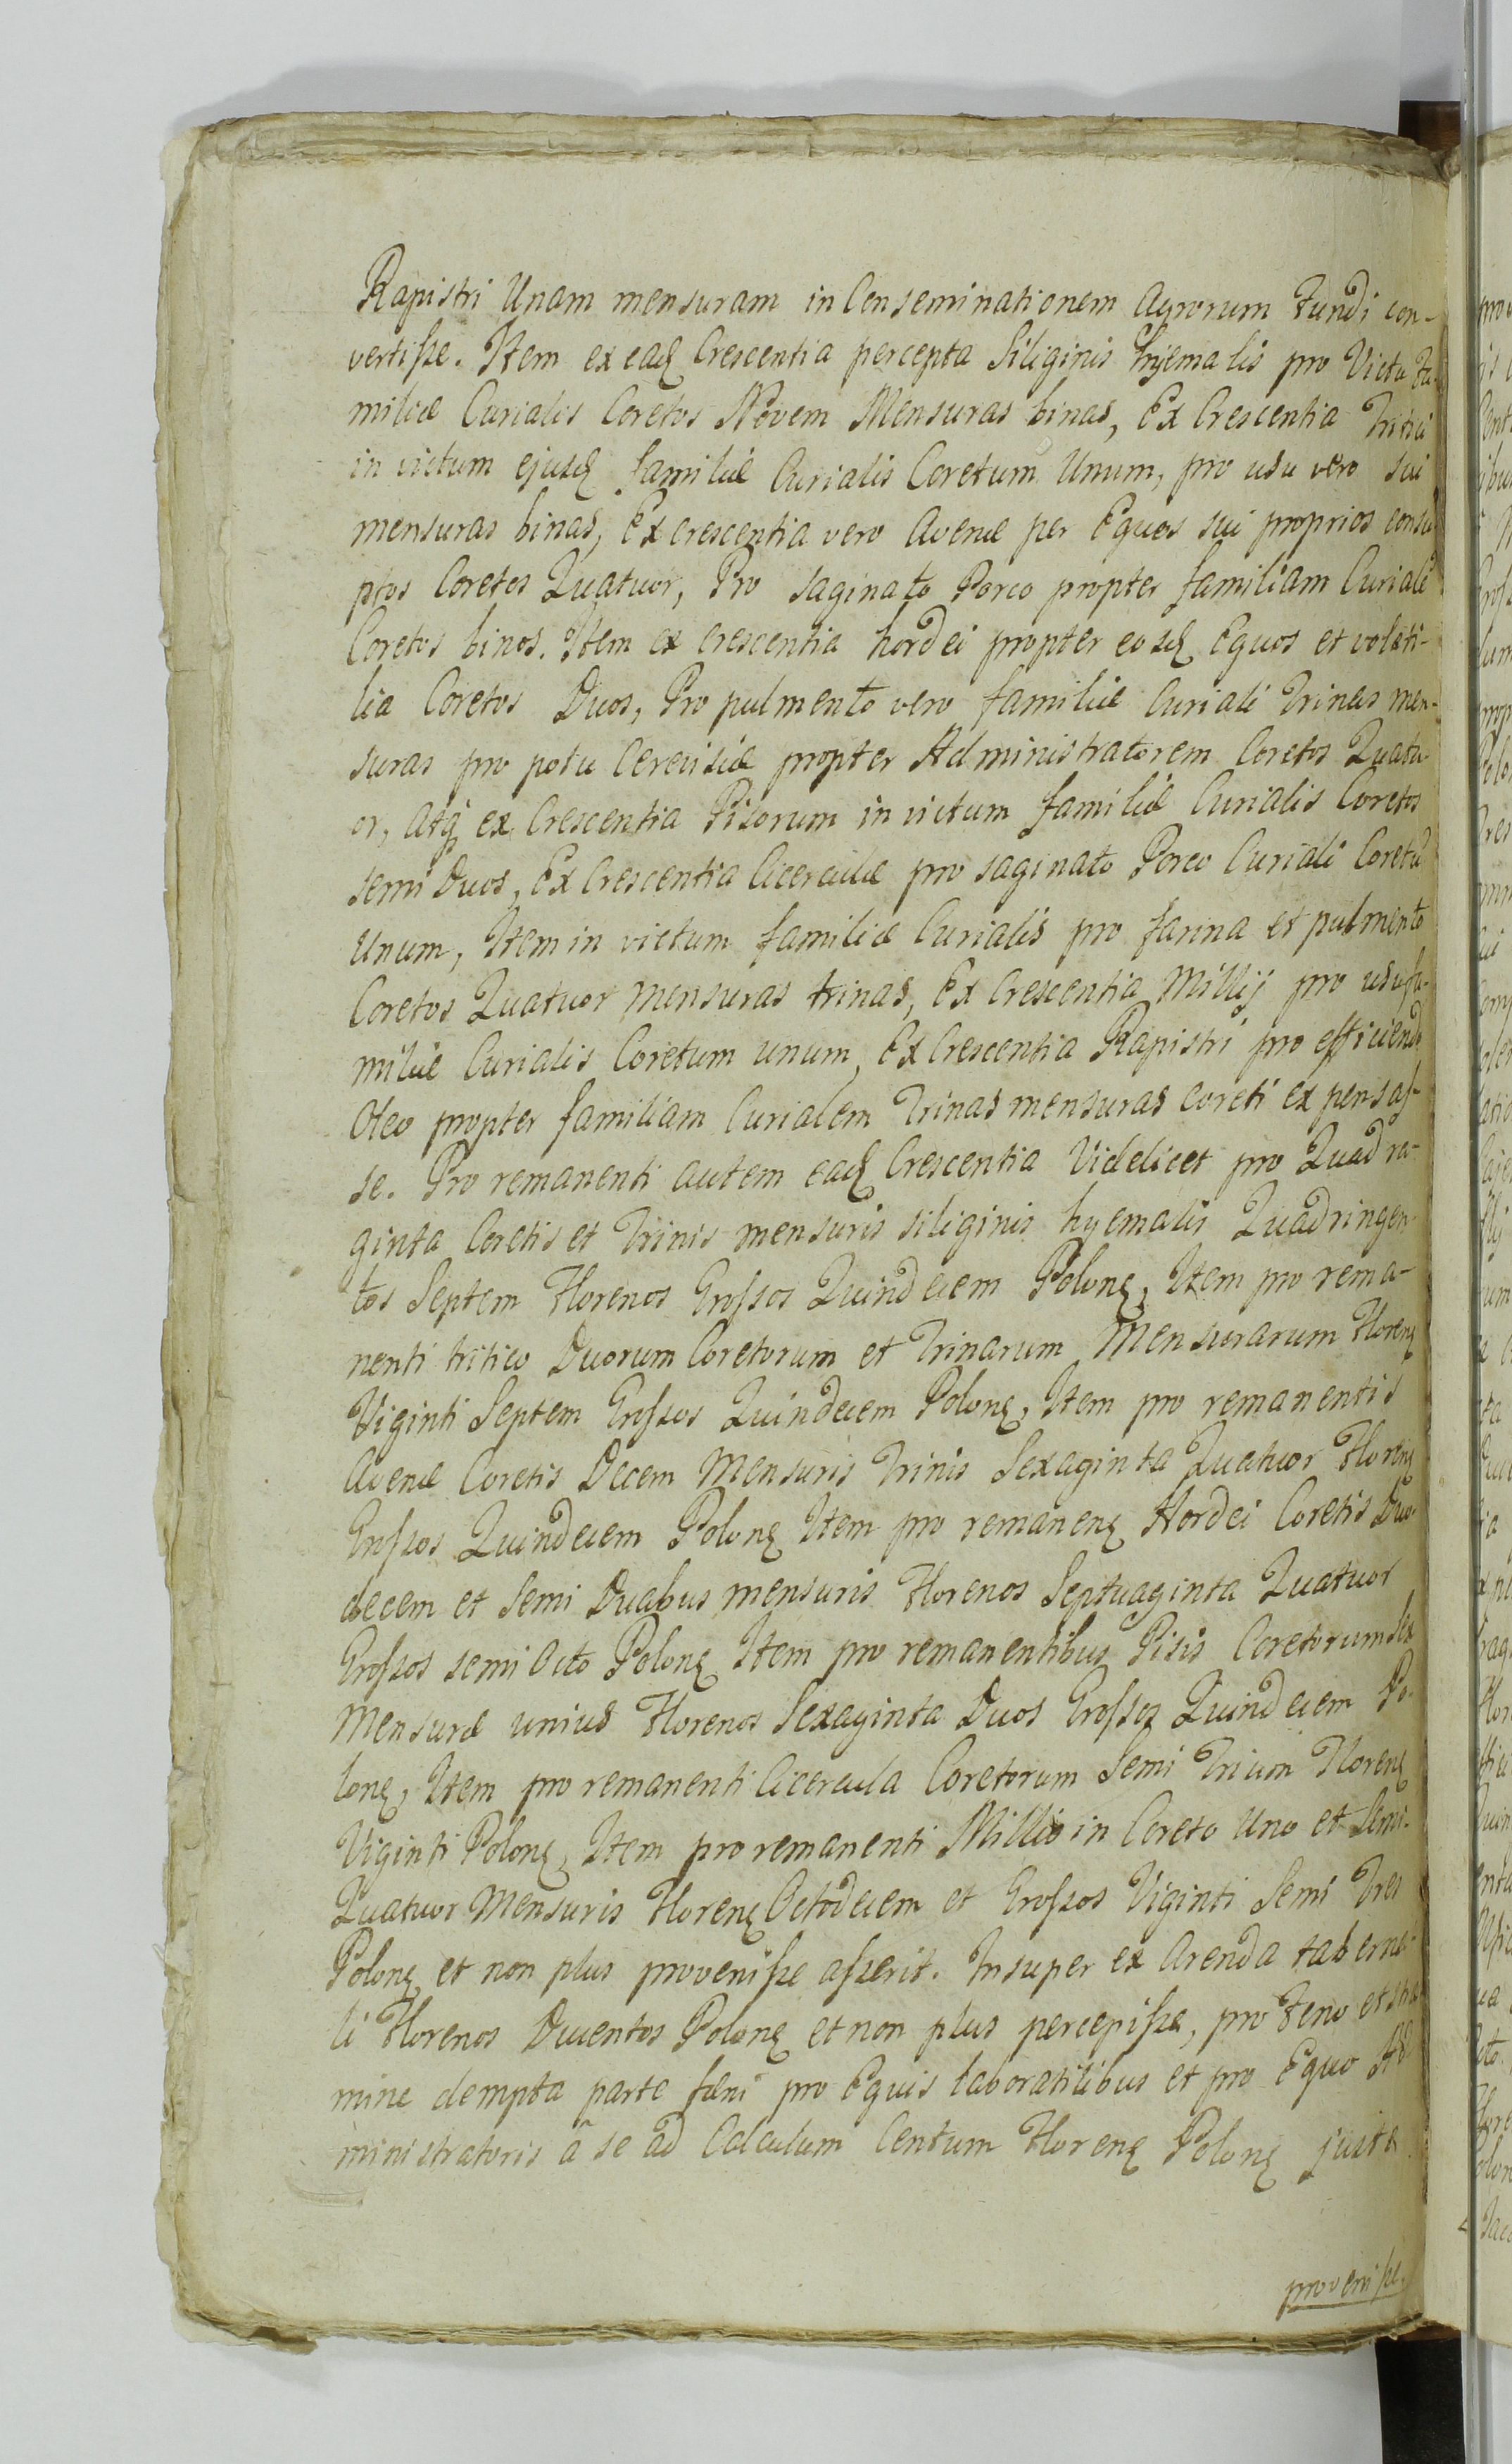 Rapistri Unam mensuram in Conseminationem Agrorum Fundi con-
vertiſse. Item ex eadę Crescentia percepta Siliginis hyemalis pro Victu Fa-
miliæ Curialis Coretos Novem Mensuras binas, Ex Crescentia Tritici
in victum ejusdę familiæ Curialis Coretum Unum, pro usu vero sui
mensuras binas, Ex crescentia vero Avenæ per Equos sui proprios consu
ptos Coretos Quatuor, Pro saginato Porco propter familiam Curialē
Coretos binos. Item ex crescentia hordei propter eosdę Equos et volati-
lia Coretos Duos, Pro pulmento vero familiæ Curiali Trinas men-
suras pro potu Cerevisiæ propter Administratorem Coretos Quatu
or, atq ex Crescentia Pisorum in victum familiæ Curialis Coretos
semi Duos, Ex Crescentia Cicerculæ pro saginato Porco Curiali Coretū
Unum, Item in victum familiæ Curialis pro farina et pulmento
Coretos Quatuor mensuras trinas, Ex Crescentia Millij pro usu fa-
miliæ Curialis Coretum unum, Ex Crescentia Rapistri pro efficiendo
Oleo propter familiam Curialem Trinas mensuras coreti expensaſ-
se. Pro remanenti autem eadę Crescentia Videlicet pro Quadra-
ginta Coretis et Trinis mensuris siliginis hyemalis Quadringen-
tos Septem Florenos Groſsos Quindecem Polonę, Item pro rema-
nenti tritico Duorum Coretorum et Trinarum Mensurarum Florenę
Viginti Septem Groſsos Quindecem Polonę, Item pro remanentis
Avenæ Coretis Decem Mensuris Trinis Sexaginta Quatuor Florenę
Groſsos Quindecem Polonę Item pro remanenę Hordei Coretis Duo-
decem et Semi Duabus mensuris Florenos Septuaginta Quatuor
Groſsos semi Octo Polonę Item pro remanentibus Pisis Coretorum Sex
Mensuræ unius Florenos Sexaginta Duos Groſsos Quindecem Po-
lonę, Item pro remanenti Cicercula Coretorum Semi Trium Florenę
Viginti Polonę, Item pro remanenti Millio in Coreto Uno et Semi-
Quatuor Mensuris Florenę Octodecem et Groſsos Viginti Semi Tres
Polonę et non plus proveniſse aſserit. Insuper ex Arenda taberna-
li Florenos Ducentos Polonę et non plus percepiſse, pro Feno et stra
mine dempta parte fæni pro Equis laboratilibus et pro Equo Ad
ministratoris â se ad Calculum Centum Florenę Polonę juste
proveniſse.